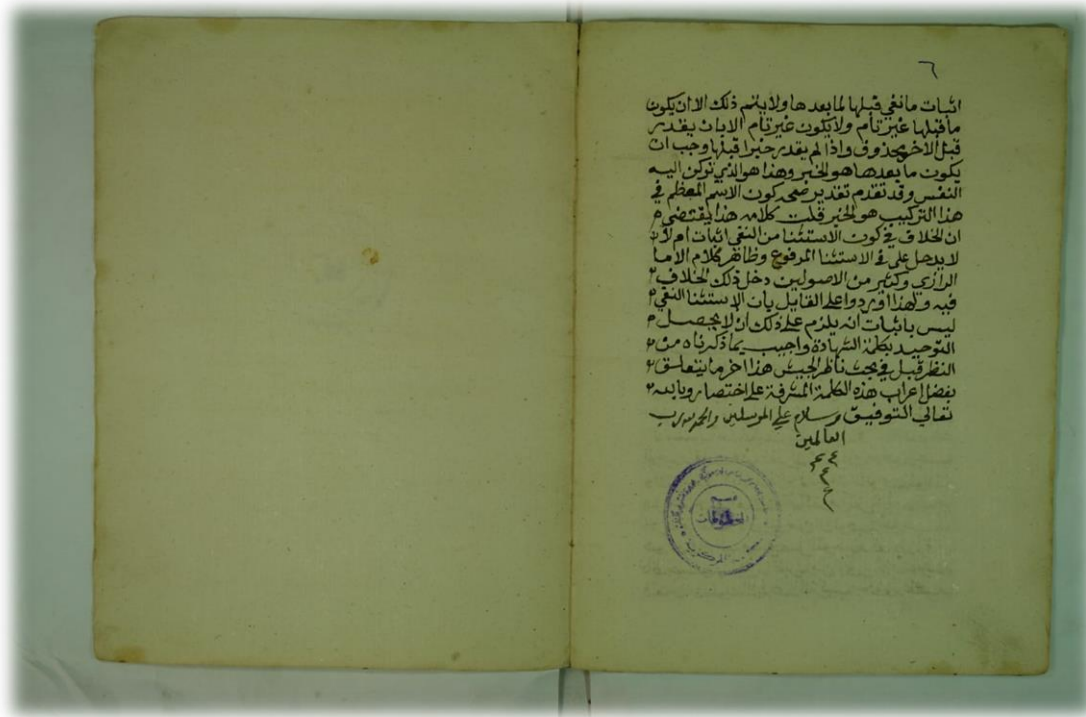 ٦
اثبات ما نفي قبلها لما بعدها ولا يتم ذلك الا ان يكون
ما قبلها غير تام ولا يكون غير تام الا بان يقدر
قبل الاخر محذوف واذا لم يقدر خبرا قبلها وجب ان
يكون ما بعدها هو الخبر وهذا هو الذي تركن اليه
النفس وقد تقدم تقدير صحه كون الاسم المعظم في
هذا التركيب هو الخبر قلت كلامه هذا يقتضي
ان الخلاف في كون الاستثنا من النفي اثبات ام لا
لا يدخل علي في الاستثنا المرفوع وظاهر كلام الاما
الرازي وكثير من الاصوليين دخل ذلك الخلاف
فيه ولهذا اوردوا علي القايل بان الاستثنا النفي
ليس باثبات انه يلزم علي ذلك ان لا يحصل
التوحيد بكلمة الشهادة واجيب بما ذكرناه من
النظر قبل في بحث ناظر الجيش هذا اخر ما يتعلق
بفضل اعراب هذه الكلمة المشرفة علي اختصار وبالله
تعالي التوفيق وسلام علي المرسلين والحمد لله رب
العالمين
المخطوطات